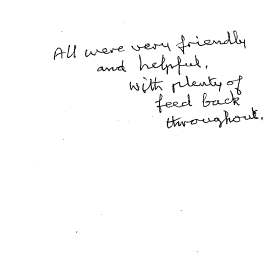 All were very friendly
and helpful,
with plenty of
feed back
throughout.